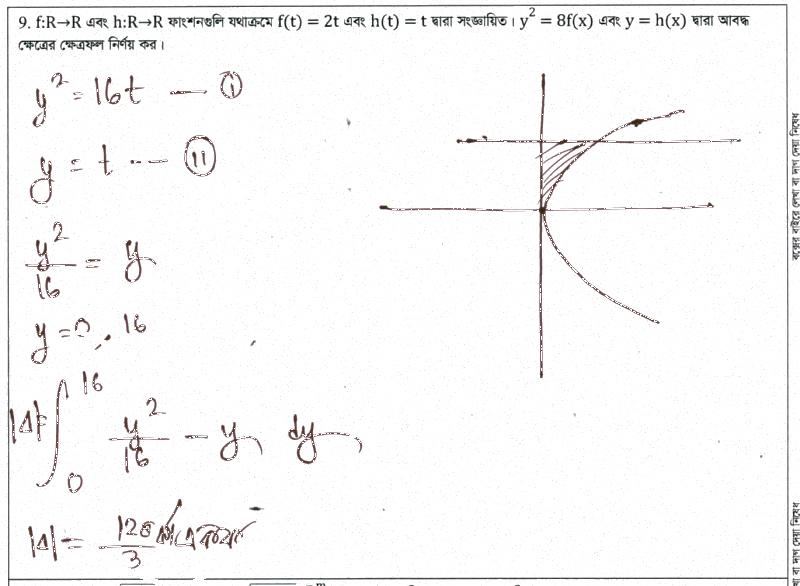 9. f:R→R এবং h:R→R ফাংশনগুলি যথাক্রমে f(t) = 2t এবং h(t) = t দ্বারা সংজ্ঞায়িত। y² = 8f(x) এবং y = h(x) দ্বারা আবদ্ধ
ক্ষেত্রের ক্ষেত্রফল নির্ণয় কর।
y² = 16t — (i)
y = t --- (ii)
y²/16 = y
y = 0, 16
|Δ| = ∫₀¹⁶ y²/16 - y dy
|Δ| = 128/3 বর্গ একক
বক্সের বাইরে লেখা বা দাগ দেয়া নিষেধ
বা দাগ দেয়া নিষেধ